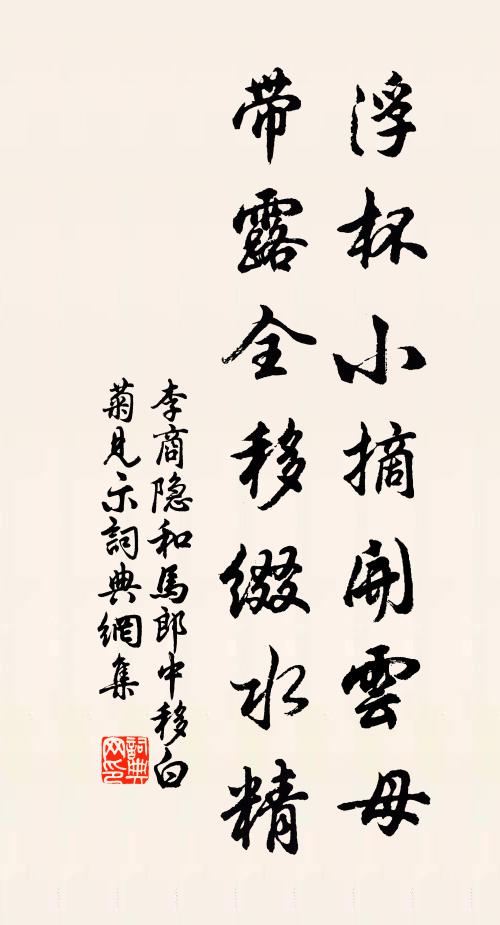 浮杯小摘開雲母
带露全移綴水精
李商隐和馬郎中移白
菊見示詞典網集
詞典
网印